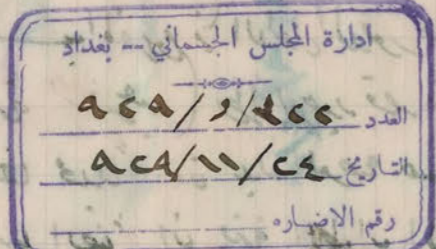 ادارة المجلس الجسماني -- بغداد
العدد
التاريخ ٩٢٩/١١/٢٤
رقم الاضباره